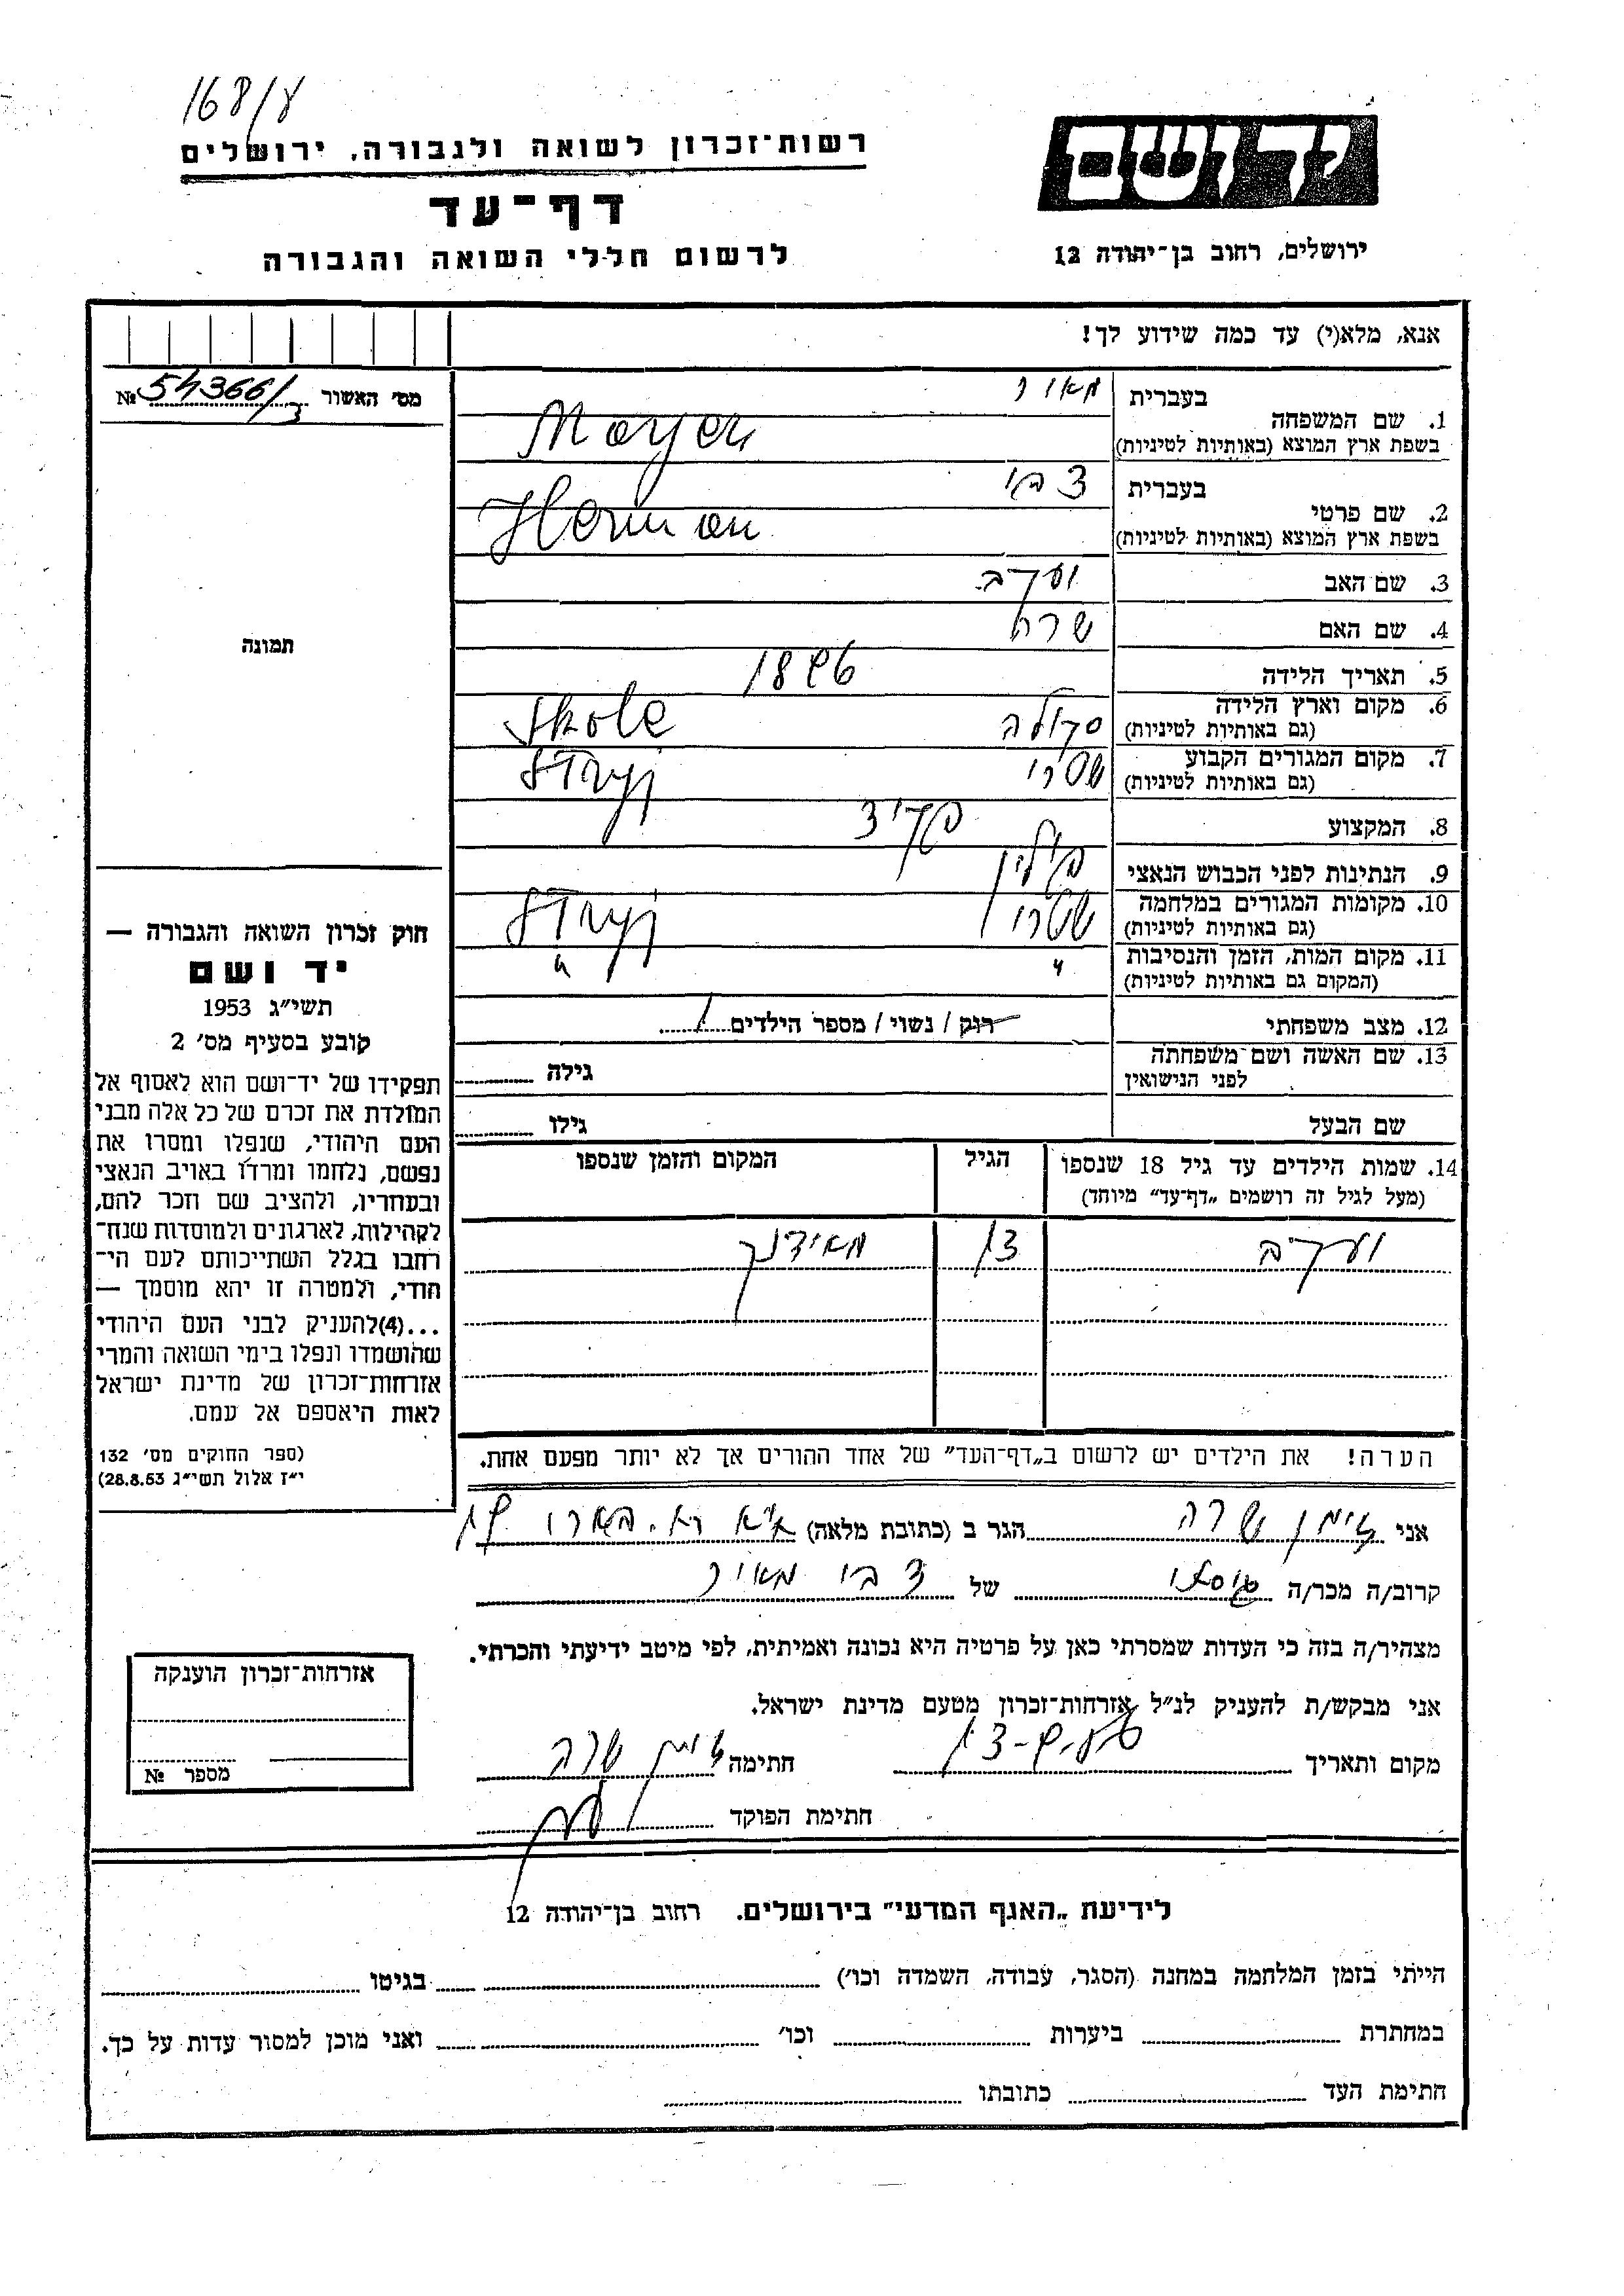 168/ע
רשות-זכרון לשואה ולגבורה, ירושלים
דף-עד
לרשום חללי השואה והגבורה
יד ושם
ירושלים, רחוב בן-יהודה 12
אנא, מלא(י) עד כמה שידוע לך!
מס' האשור №54366/3
1. שם המשפחה בעברית מאור
בשפת ארץ המוצא (באותיות לטיניות) Mayer
2. שם פרטי בעברית צבי
בשפת ארץ המוצא (באותיות לטיניות) Herman
3. שם האב יעקב
4. שם האם שרה
5. תאריך הלידה 1896
6. מקום וארץ הלידה סקולה Skole
(גם באותיות לטיניות)
7. מקום המגורים הקבוע שטרי Stryj
(גם באותיות לטיניות)
8. המקצוע פקיד
9. הנתינות לפני הכבוש הנאצי פולין
10. מקומות המגורים במלחמה שטרי Stryj
(גם באותיות לטיניות)
11. מקום המות, הזמן והנסיבות " "
(המקום גם באותיות לטיניות)
12. מצב משפחתי רווק / נשוי / מספר הילדים 1
13. שם האשה ושם משפחתה לפני הנישואין גילה
שם הבעל גילו
14. שמות הילדים עד גיל 18 שנספו הגיל המקום והזמן שנספו
(מעל לגיל זה רושמים „דף-עד” מיוחד)
יעקב 13 מאידנק
הערה! את הילדים יש לרשום ב„דף-העד” של אחד ההורים אך לא יותר מפעם אחת.
תמונה
חוק זכרון השואה והגבורה —
יד ושם
תשי״ג 1953
קובע בסעיף מס' 2
תפקידו של יד-ושם הוא לאסוף אל
המולדת את זכרם של כל אלה מבני
העם היהודי, שנפלו ומסרו את
נפשם, נלחמו ומרדו באויב הנאצי
ובעוזריו, ולהציב שם וזכר להם,
לקהילות, לארגונים ולמוסדות שנח-
רחבו בגלל השתייכותם לעם הי-
הודי, ולמטרה זו יהא מוסמך —
...(4) להעניק לבני העם היהודי
שהושמדו ונפלו בימי השואה והמרי
אזרחות-זכרון של מדינת ישראל
לאות היאספם אל עמם.
(ספר החוקים מס' 132
י״ז אלול תשי״ג 28.8.53)
אני שרה הגר ב (כתובת מלאה)
קרוב/ה מכר/ה של צבי מאור
מצהיר/ה בזה כי העדות שמסרתי כאן על פרטיה היא נכונה ואמיתית, לפי מיטב ידיעתי והכרתי.
אני מבקש/ת להעניק לנ״ל אזרחות-זכרון מטעם מדינת ישראל.
מקום ותאריך חתימה שרה
חתימת הפוקד
אזרחות-זכרון הוענקה
מספר №
לידיעת „האגף המדעי” בירושלים. רחוב בן-יהודה 12
הייתי בזמן המלחמה במחנה (הסגר, עבודה, השמדה וכו') בגיטו
במחתרת ביערות וכו' ואני מוכן למסור עדות על כך.
חתימת העד כתובתו